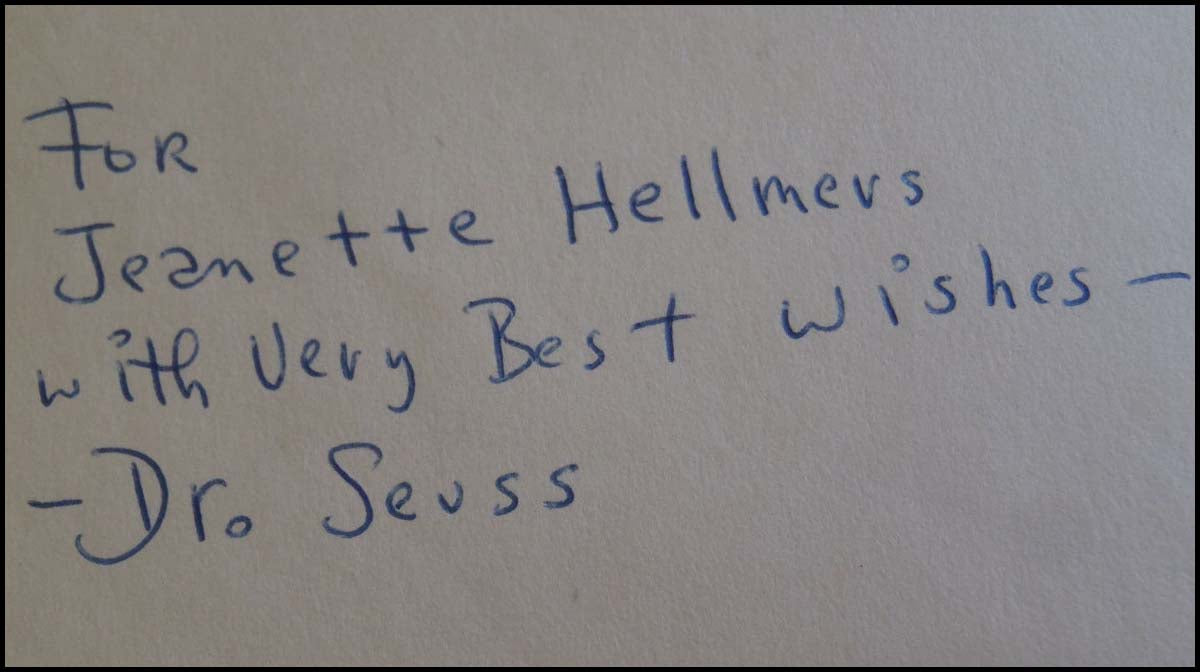 For
Jeanette Hellmers
with Very Best wishes —
— Dr. Seuss